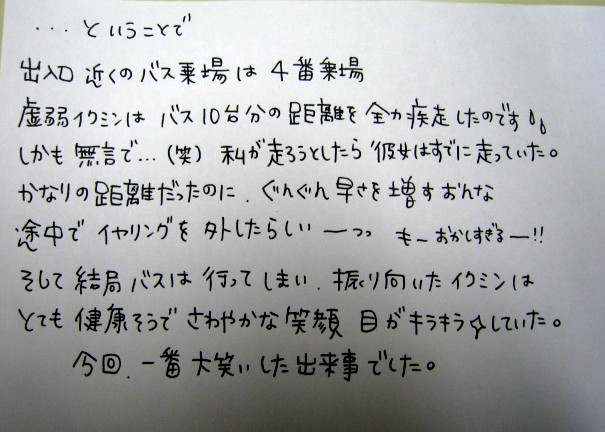 ・・・ということで
出入口近くのバス乗場は4番乗場
虚弱イクミンはバス10台分の距離を全力疾走したのです!!
しかも無言で…(笑) 私が走ろうとしたら彼女はすでに走っていた。
かなりの距離だったのに、ぐんぐん早さを増すおんな
途中でイヤリングを外したらしいーっっ もーおかしすぎるー!!
そして結局バスは行ってしまい、振り向いたイクミンは
とても健康そうでさわやかな笑顔 目がキラキラ☆していた。
今回、一番大笑いした出来事でした。